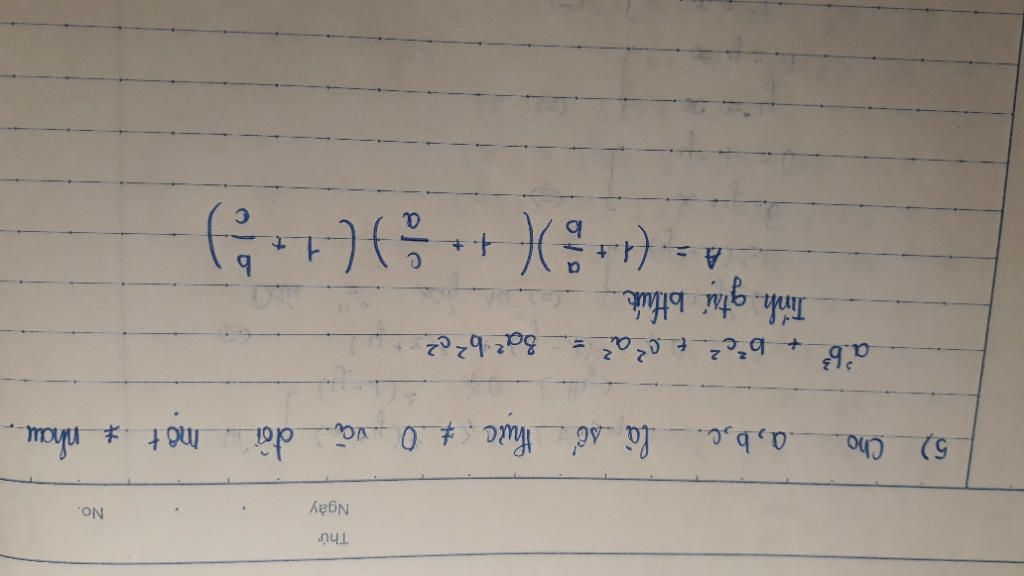 Thứ
Ngày
No.
5) Cho a,b,c là số thực ≠ 0 và đôi một ≠ nhau.
a³b³ + b²c² + c²a² = 3a²b²c²
Tính gtrị bthức
A = (1 + a/b)(1 + c/a)(1 + b/c)